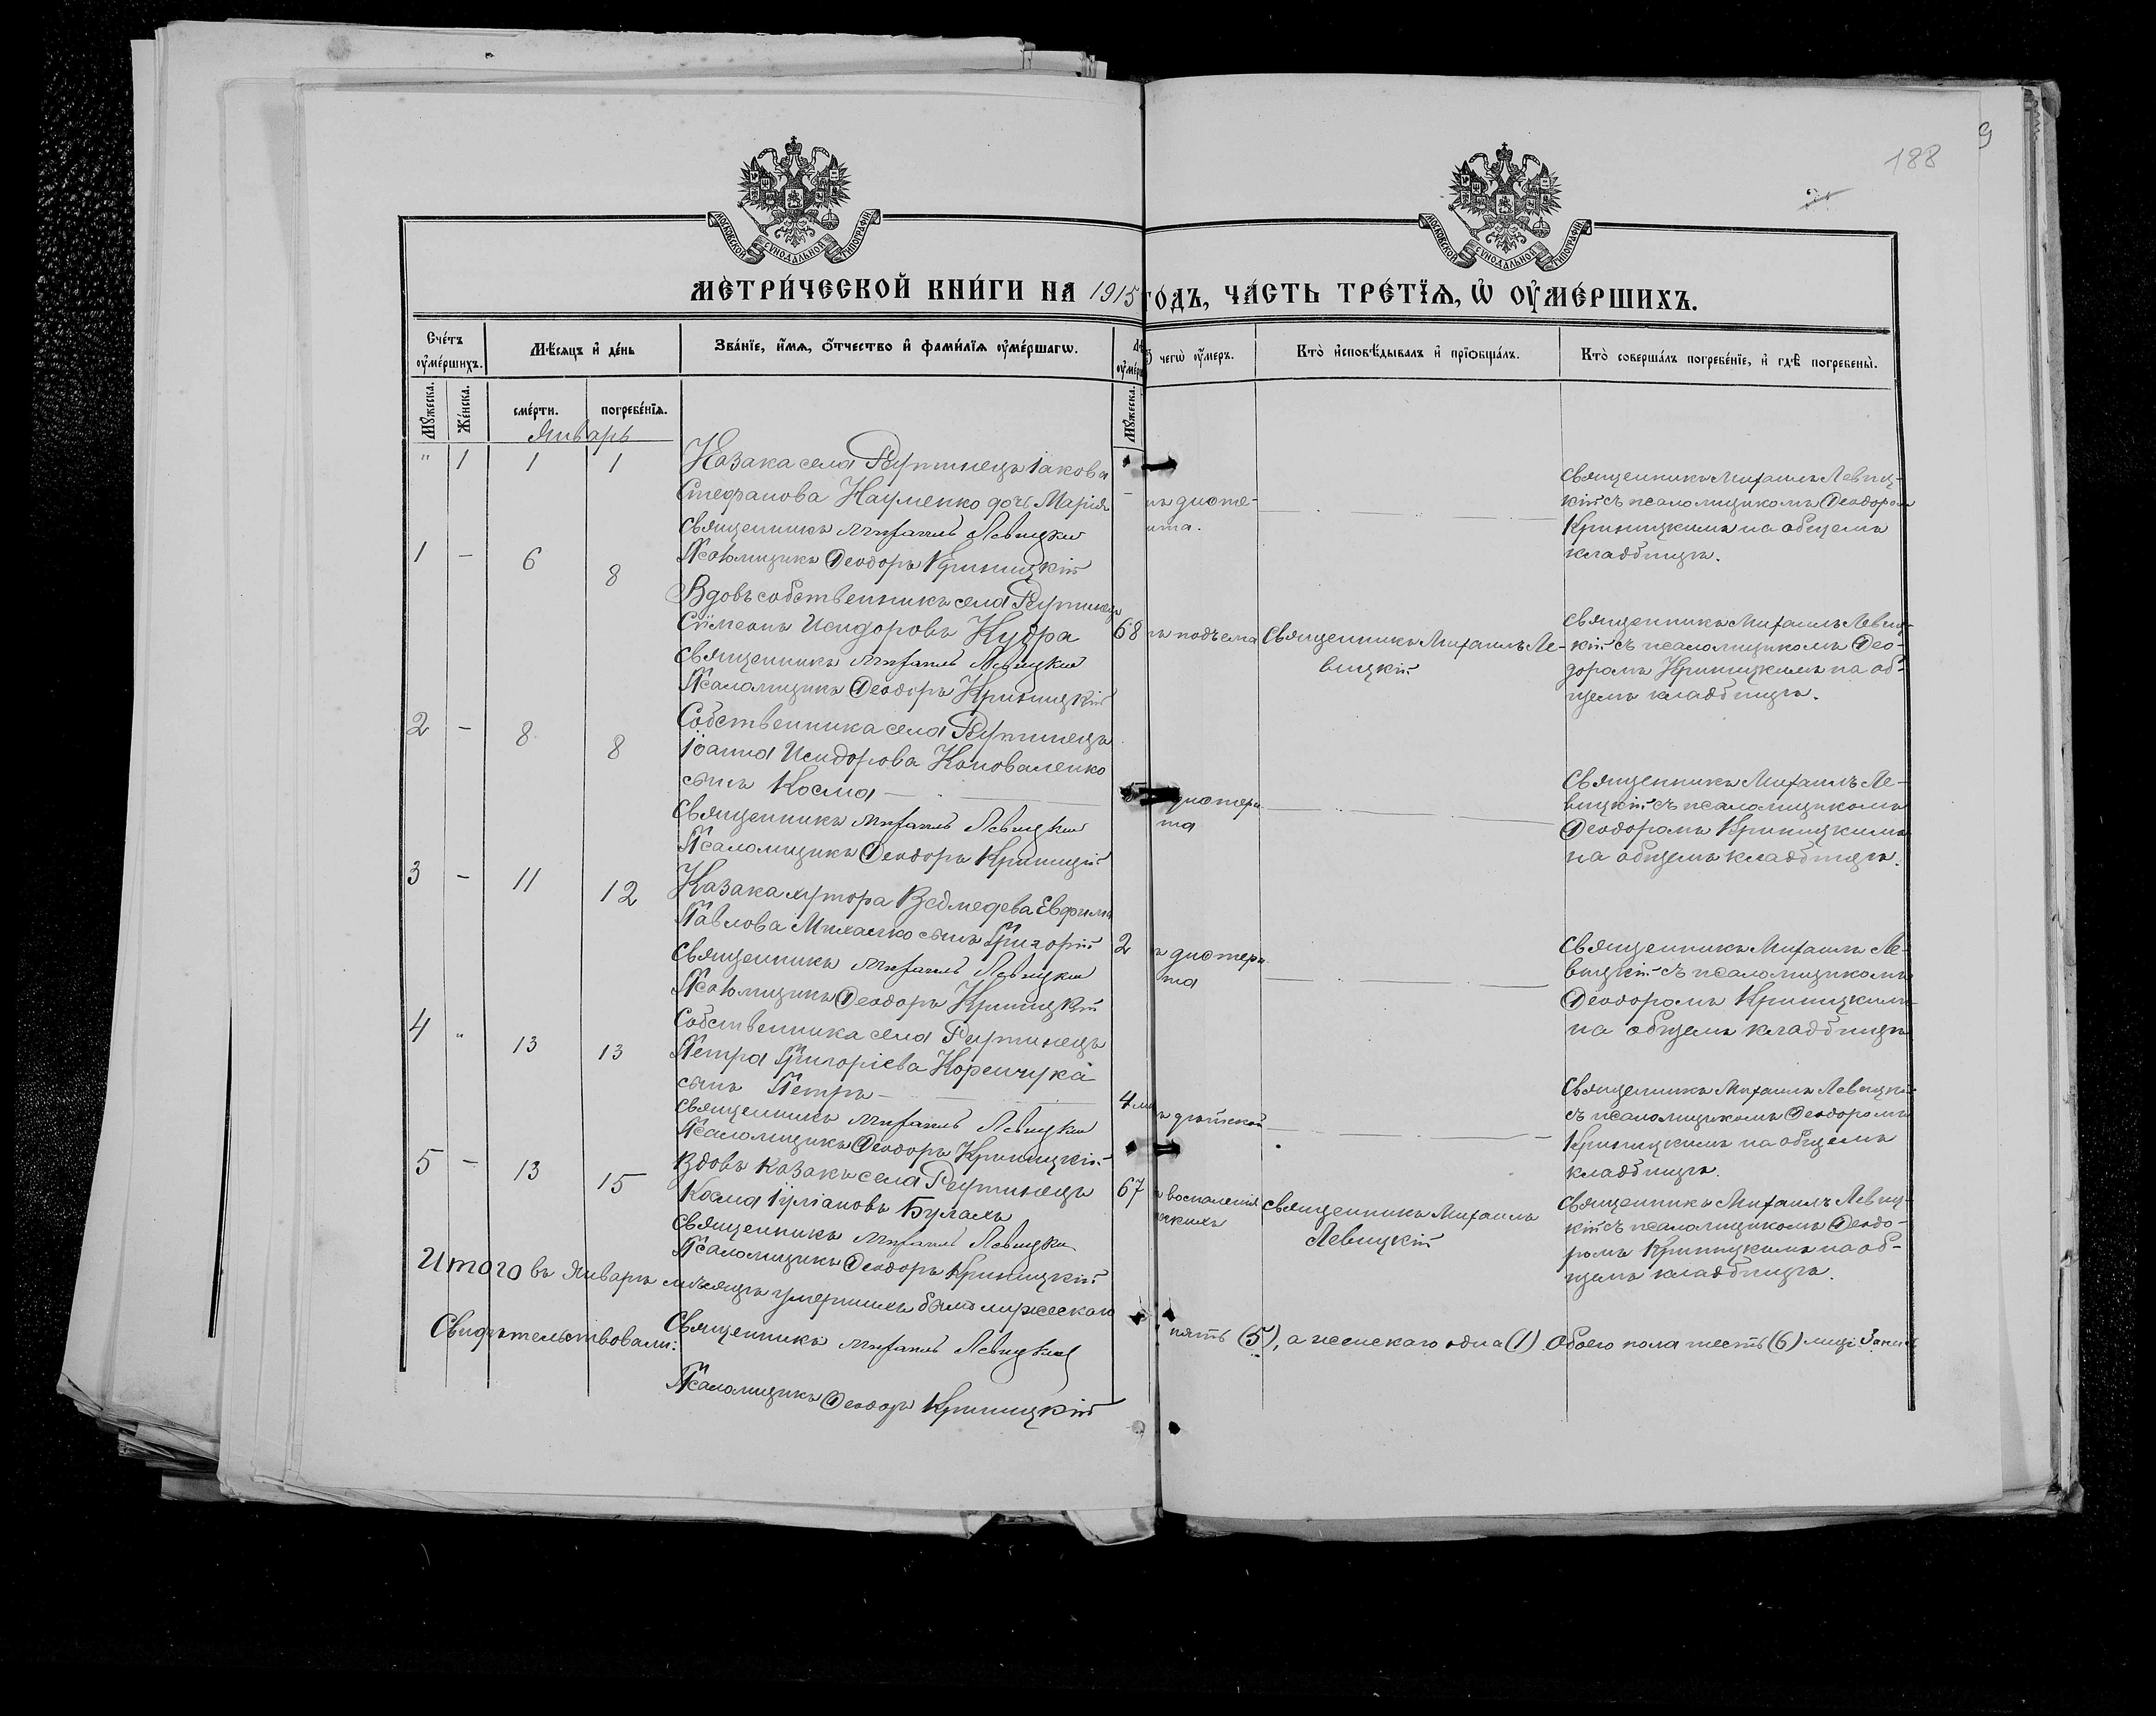 188
9
МОСКОВСКОЙ СѴНОДАЛЬНОЙ ТИПОГРАФІИ
МОСКОВСКОЙ СѴНОДАЛЬНОЙ ТИПОГРАФІИ
МЕТРИ́ЧЕСКОЙ КНИ́ГИ НА 1915 ГО́ДЪ, ЧА́СТЬ ТРЕ́ТЇѦ, Ѡ҆ ОУ҆МЕ́РШИХЪ.
Сче́тъ оу҆ме́ршихъ.
Мѣ́сѧцъ и҆ де́нь
Зва́нїе, и҆́мѧ, ѻ҆́тчество и҆ фами́лїѧ оу҆ме́ршагѡ.
чегѡ̀ оу҆́меръ.
Кто̀ и҆сповѣ́дывалъ и҆ прїѻбща́лъ.
Кто̀ соверша́лъ погребе́нїе, и҆ гдѣ̀ погребены̀.
Мꙋ́жеска.
Же́нска.
сме́рти.
погребе́нїѧ.
Мꙋ́жеска.
Январь
" 1 1 1
Казака села Реутинецъ Іакова
Стефанова Науменко дочь Марія
Священникъ Михаилъ Левицкій
Псаломщикъ Ѳеодоръ Криницкій
Священникъ Михаилъ Левиц-
кій съ псаломщикомъ Ѳеодоромъ
Криницкимъ на общемъ
кладбищѣ.
1 - 6 8
Вдовъ собственникъ села Реутинецъ
Сѵмеонъ Исидоровъ Кудра
68
Священникъ Михаилъ Левицкій
Псаломщикъ Ѳеодоръ Криницкій
Священникъ Михаилъ Ле-
вицкій
Священникъ Михаилъ Левиц-
кій съ псаломщикомъ Ѳео-
доромъ Криницкимъ на об-
щемъ кладбищѣ.
2 - 8 8
Собственника села Реутинецъ
Іоанна Исидорова Коноваленко
сынъ Косма
5
Священникъ Михаилъ Левицкій
Псаломщикъ Ѳеодоръ Криницкій
Священникъ Михаилъ Ле-
вицкій съ псаломщикомъ
Ѳеодоромъ Криницкимъ
на общемъ кладбищѣ.
3 - 11 12
Казака хутора Ведмедева Евфима
Павлова сынъ Григорій
2
Священникъ Михаилъ Левицкій
Псаломщикъ Ѳеодоръ Криницкій
Священникъ Михаилъ Ле-
вицкій съ псаломщикомъ
Ѳеодоромъ Криницкимъ
на общемъ кладбищѣ
4 " 13 13
Собственника села Реутинецъ
Петра Григоріева Коренчука
сынъ Петръ
Священникъ Михаилъ Левицкій
Псаломщикъ Ѳеодоръ Криницкій
Священникъ Михаилъ Левицкій
съ псаломщикомъ Ѳеодоромъ
Криницкимъ на общемъ
кладбищѣ.
5 - 13 15
Вдовъ казакъ села Реутинецъ
Косма Іуліановъ Булахъ
67
воспаленія
Священникъ Михаилъ Левицкій
Псаломщикъ Ѳеодоръ Криницкій
Священникъ Михаилъ
Левицкій
Священникъ Михаилъ Левиц-
кій съ псаломщикомъ Ѳеодо-
ромъ Криницкимъ на об-
щемъ кладбищѣ.
Итого въ Январѣ мѣсяцѣ умершихъ было мужескаго пять (5), а женскаго одна (1). Обоего пола шесть (6) лицъ.
Свидѣтельствовали:
Священникъ Михаилъ Левицкій
Псаломщикъ Ѳеодоръ Криницкій